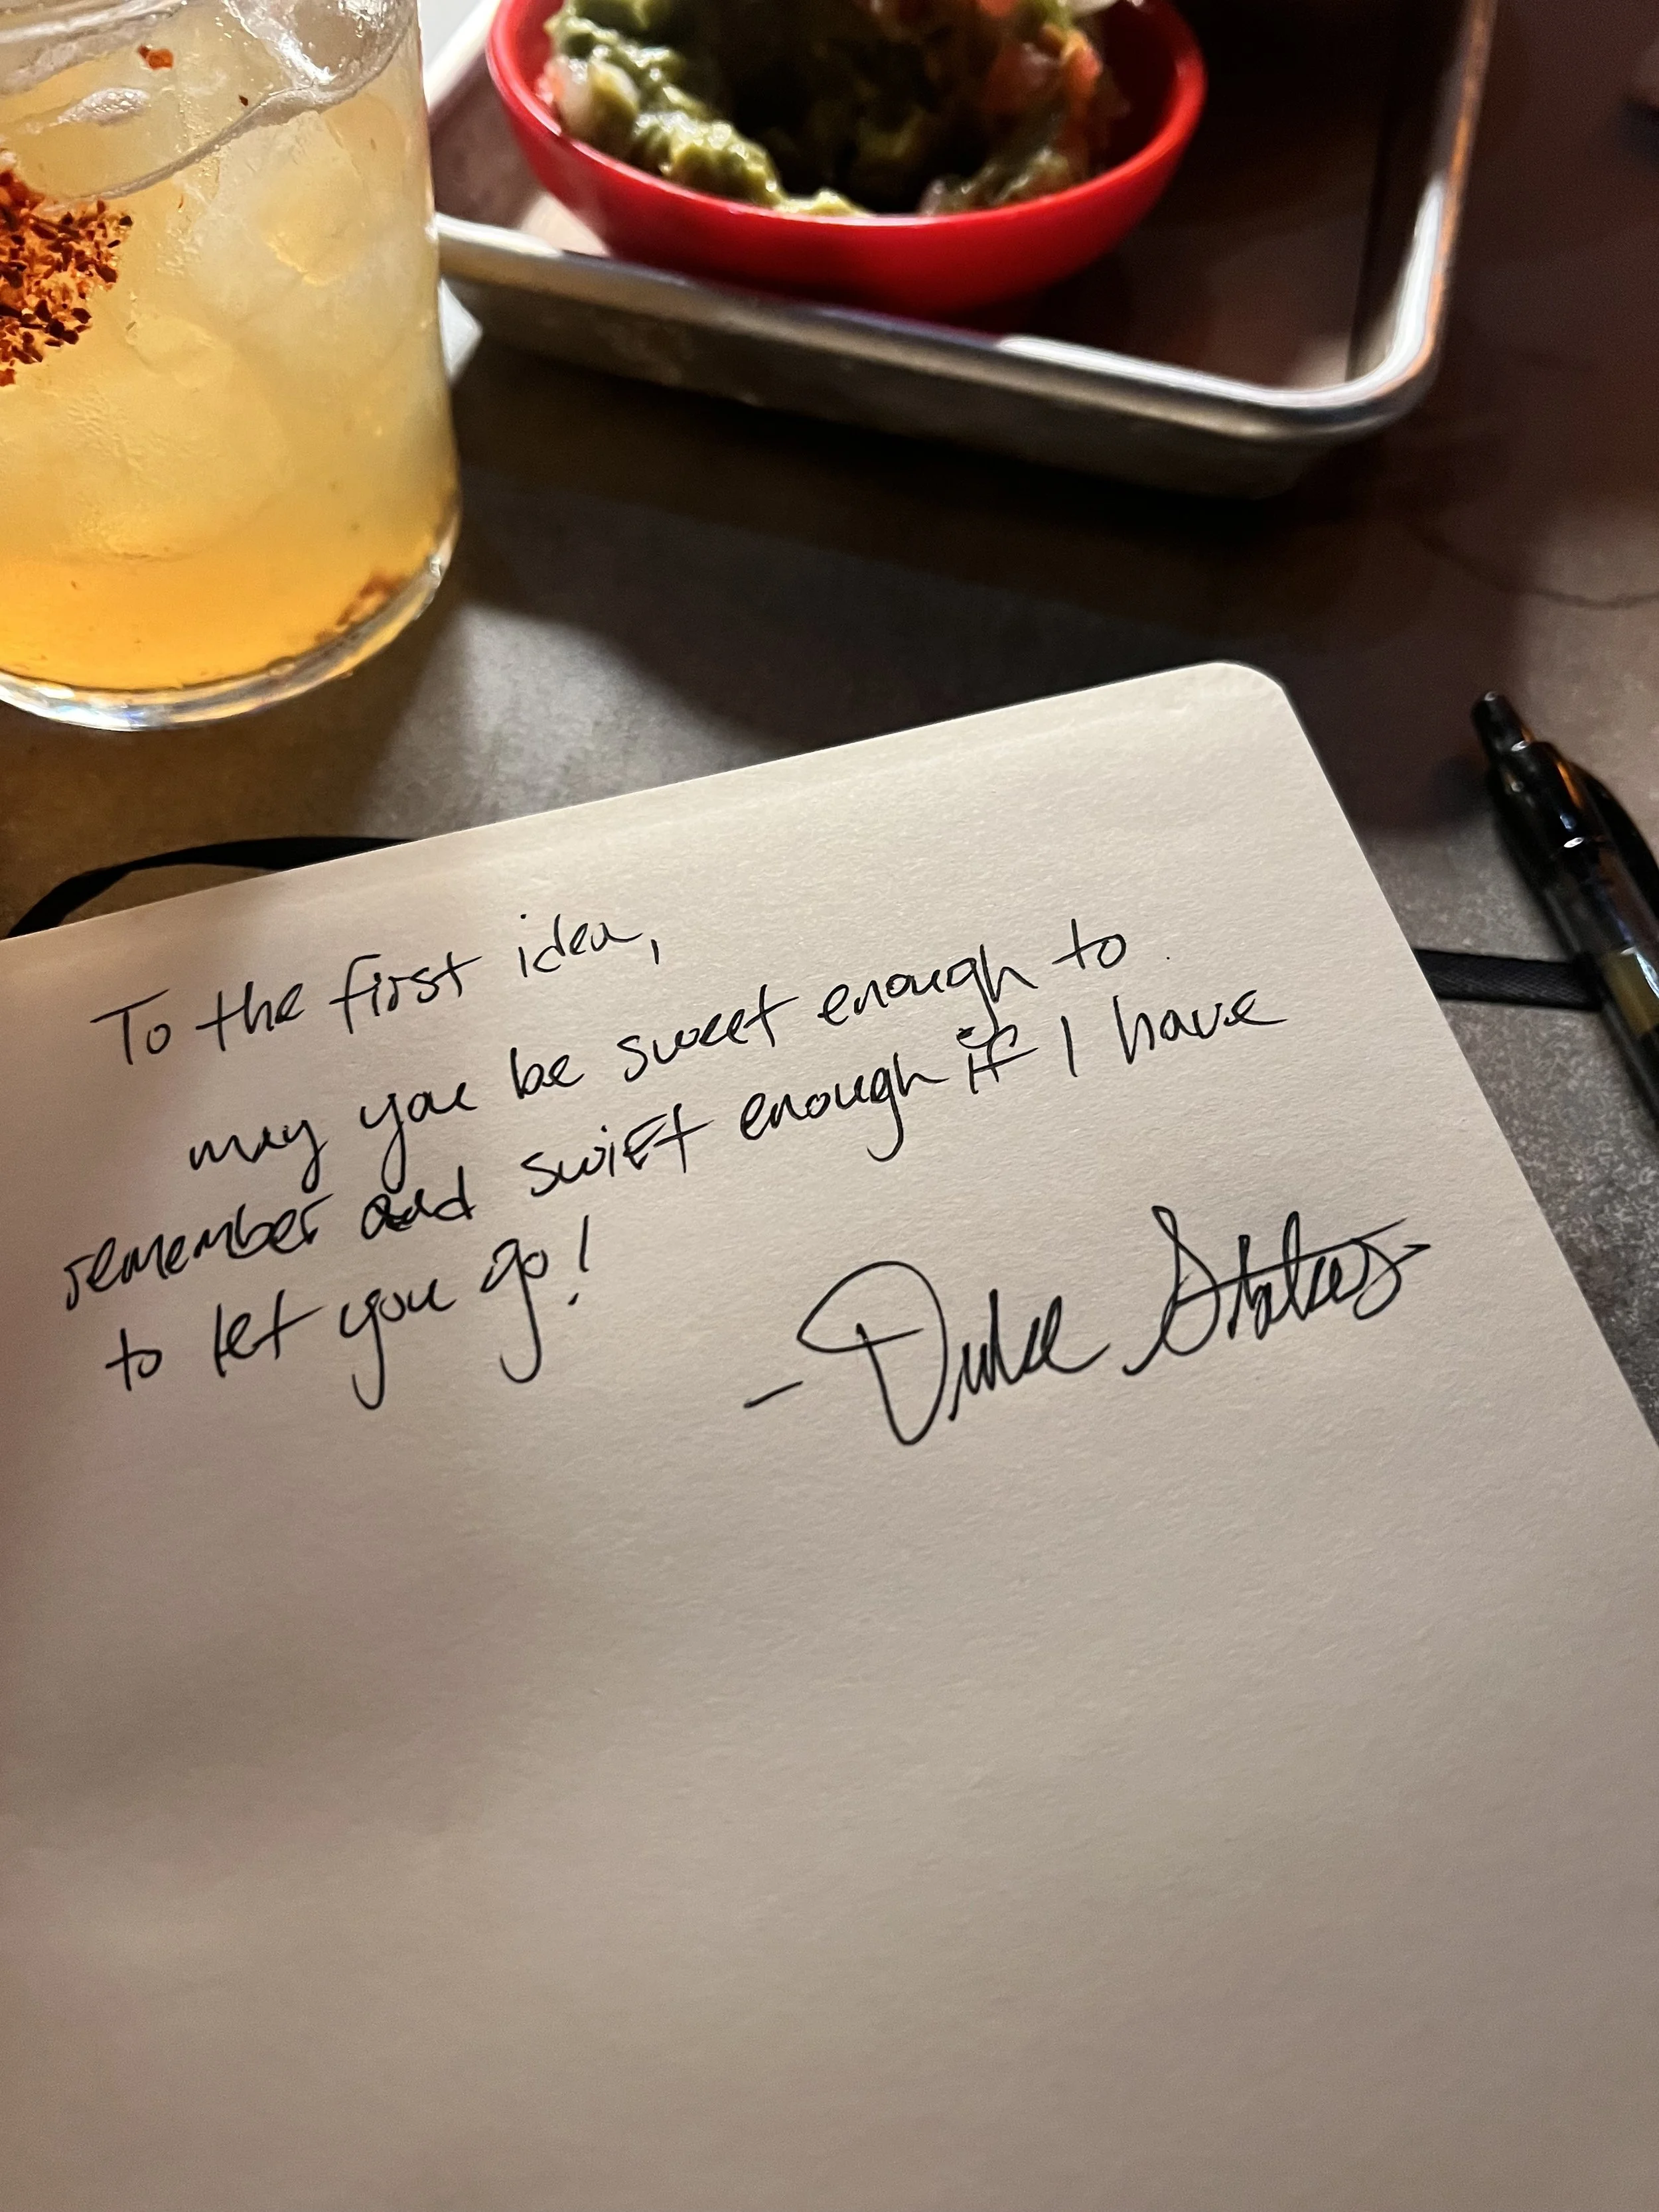 To the first idea,
may you be sweet enough to
remember and swift enough if I have
to let you go!
- Duke